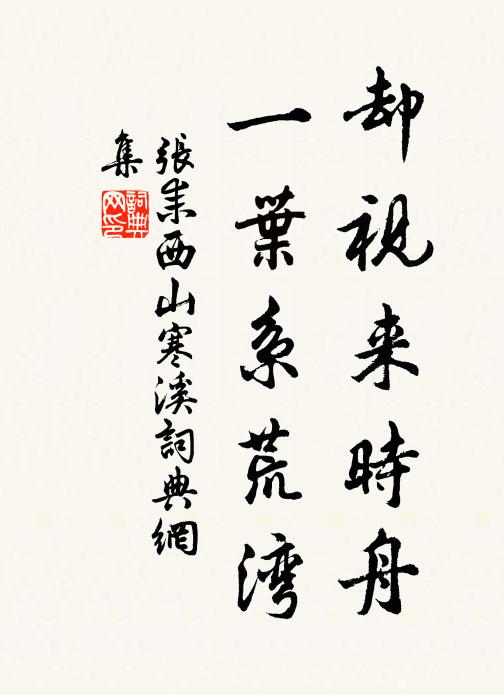 却視来時舟
一葉系荒湾
張耒西山寒溪詞典網
集
詞典
网印